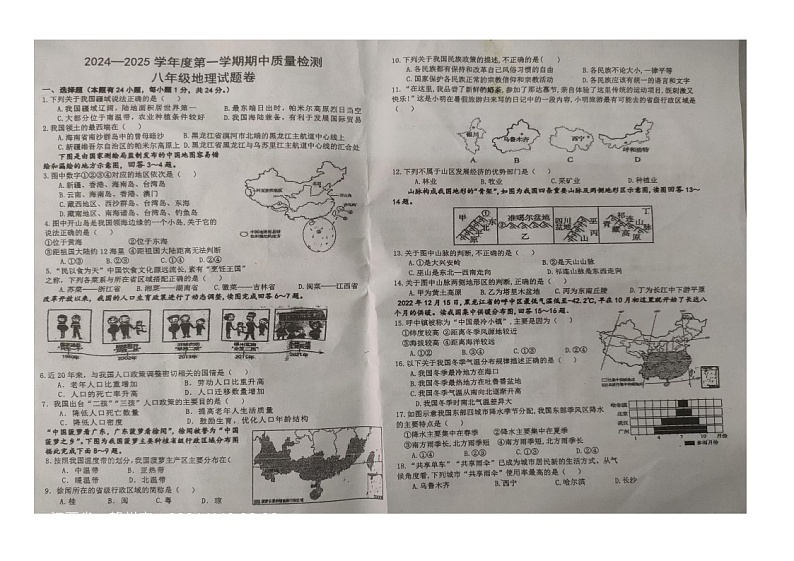 2024—2025 学年度第一学期期中质量检测
八年级地理试题卷
一、选择题（本题有24小题，每小题1分，共24分。）
1.下列关于我国疆域说法正确的是（ ）
A.我国疆域辽阔，陆地面积居世界第一 B.最东端日出时，帕米尔高原烈日当空
C.大部分位于南温带，农业种植条件较好 D.我国海陆兼备，有利于发展国际贸易
2.我国领土的最西端在（ ）
A.海南省南沙群岛中的曾母暗沙 B.黑龙江省漠河市北端的黑龙江主航道中心线上
C.新疆维吾尔自治区的帕米尔高原上 D.黑龙江省黑龙江与乌苏里江主航道中心线的汇合处
下图是由国家测绘局监制发布的中国地图容易错
绘和漏绘的地方示意图，回答3～4题。
3.图中数字①②③④对应的地区依次是（ ）
A.新疆、香港、海南岛、台湾岛
B.云南、海南岛、香港、澳门
C.藏南地区、西沙群岛、台湾岛、东海
D.藏南地区、南海诸岛、台湾岛、钓鱼岛
4.图中开山岛是我国领海边缘的一个小岛,关于它的
说法正确的是（ ）
①位于黄海 ②位于东海
③距祖国大陆约12海里 ④距祖国大陆距离无法判断
A.①③ B.②③ C.①④ D.②④
5.“民以食为天”中国饮食文化源远流长,素有“烹饪王国”
之称，下列各菜系与所在省区搭配正确的是（ ）
A.苏菜——浙江省 B.湘菜——湖南省 C.徽菜——吉林省 D.闽菜——江西省
改革开放以来，我国的人口生育政策进行了动态调整，读图完成回答6～7题。
1980年 2002年 2013年 2015年 2021年
6.近20年来，与我国人口政策调整密切相关的国情是（ ）
A. 老年人口比重增加 B. 劳动人口比重升高
C. 人口的死亡率升高 D. 人口迁移数量增加
7. 我国出台“二孩”“三孩”人口政策的主要目的是（ ）
A. 降低人口死亡数量 B. 提高老年人生活质量
C. 降低人口密度 D. 鼓励生育，优化人口年龄结构
“中国菠萝看广东，广东菠萝看徐闻”，徐闻被誉为“中国
菠萝之乡”。下图为我国菠萝主要种植省级行政区域分布图
据此完成下面8～9题。
8.按照我国温度带的划分,我国菠萝主产区主要分布在（
A. 中温带 B. 亚热带
C. 暖温带 D. 北温带
9. 徐闻所在的省级行政区域的简称是（ ）
A. 桂 B. 闽 C. 粤 D. 琼
10.下列关于我国民族政策的描述,不正确的是（ ）
A.各民族都有保持和改革自己风俗习惯的自由 B.各民族不论大小,一律平等
C.国家保护各民族正常的宗教信仰和宗教活动 D.各民族应该有统一的语言和文字
11.“在这里,我品尝了新鲜的奶茶,参加了那达慕节,亲自体验了这里传统的运动项目,既刺激又
快乐!”这是小明在暑假旅游归来写的日记中的一段内容,小明旅游最有可能去的省级行政区域是
（ ）
银川 乌鲁木齐 西宁 呼和浩特
A B C D
12.下列不属于山区发展经济的优势部门是（ ）
A.林业 B.牧业 C.采矿业 D.种植业
山脉构成我国地形的“骨架”,如图为我国四条重要山脉及两侧地形区示意图,读图回答13～
14题。
甲 ① 东北平原 准噶尔盆地 ② 乙 四川盆地 巫山 丙 青藏高原 祁连山 丁
13.关于图中山脉的判断,不正确的是（ ）
A.①是大兴安岭 B.②是天山山脉
C.巫山是东北—西南走向 D.祁连山脉是东西走向
14.关于图中山脉两侧地形区的判断,正确的是（ ）
A.甲为黄土高原 B.乙为塔里木盆地 C.丙为东南丘陵 D.丁为长江中下游平原
2022年12月15日,黑龙江省的呼中区最低气温低至-42.2℃,于在10月初这里就开始了长达八
个月的供暖。读我国集中供暖分布图,回答15～16题。
15.呼中镇被称为“中国最冷小镇”,主要是因为（ ）
①纬度较高 ②距离冬季风源地较近
③海拔较低 ④距离海洋较近
A.①② B.③④ C.②③ D.①④
16.以下关于我国冬季气温分布规律描述正确的是（ ）
A.我国冬季最冷地方在海口
B.我国冬季最热地方在吐鲁番盆地
C.我国冬季气温从南向北逐渐升高
D.我国冬季南北气温差异大
17.如图示意我国东部四城市降水季节分配,我国东部季风区降水
的主要特点是（ ）
①降水主要集中在春季 ②降水主要集中在夏季
③南方雨季长,北方雨季短 ④南方雨季短,北方雨季长
A.①③ B.②③ C.①④ D.②④
哈尔滨
北京
武汉
广州
1 4 7 10 月份
18.“共享单车”“共享雨伞”已成为城市居民新的生活方式。从气
候角度看,下列城市“共享雨伞”使用率最高的是（ ）
A.乌鲁木齐 B.西宁 C.哈尔滨 D.长沙